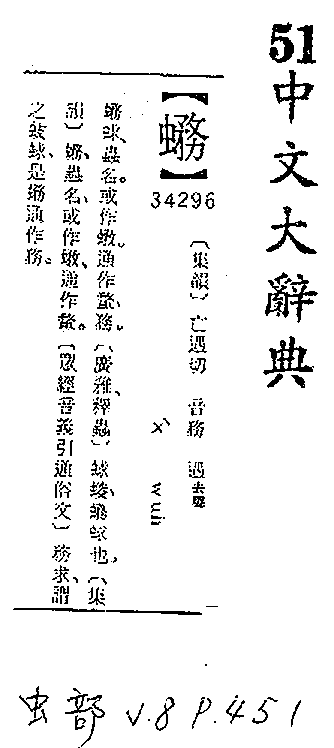 51
中文大辭典
【蝥】
34296
〔集韻〕亡遇切 音務 遇去聲
ㄨˋ wuh
蝥蛷、蟲名。或作蝥、通作蟊、務。〔廣雅、釋蟲〕蛷螋、蝥蛷也。〔集
韻〕蝥、蟲名、或作蝥、通作蟊。〔眾經音義引通俗文〕務求、謂
之蛷螋、是蝥通作務。
虫部 v.8 P.451